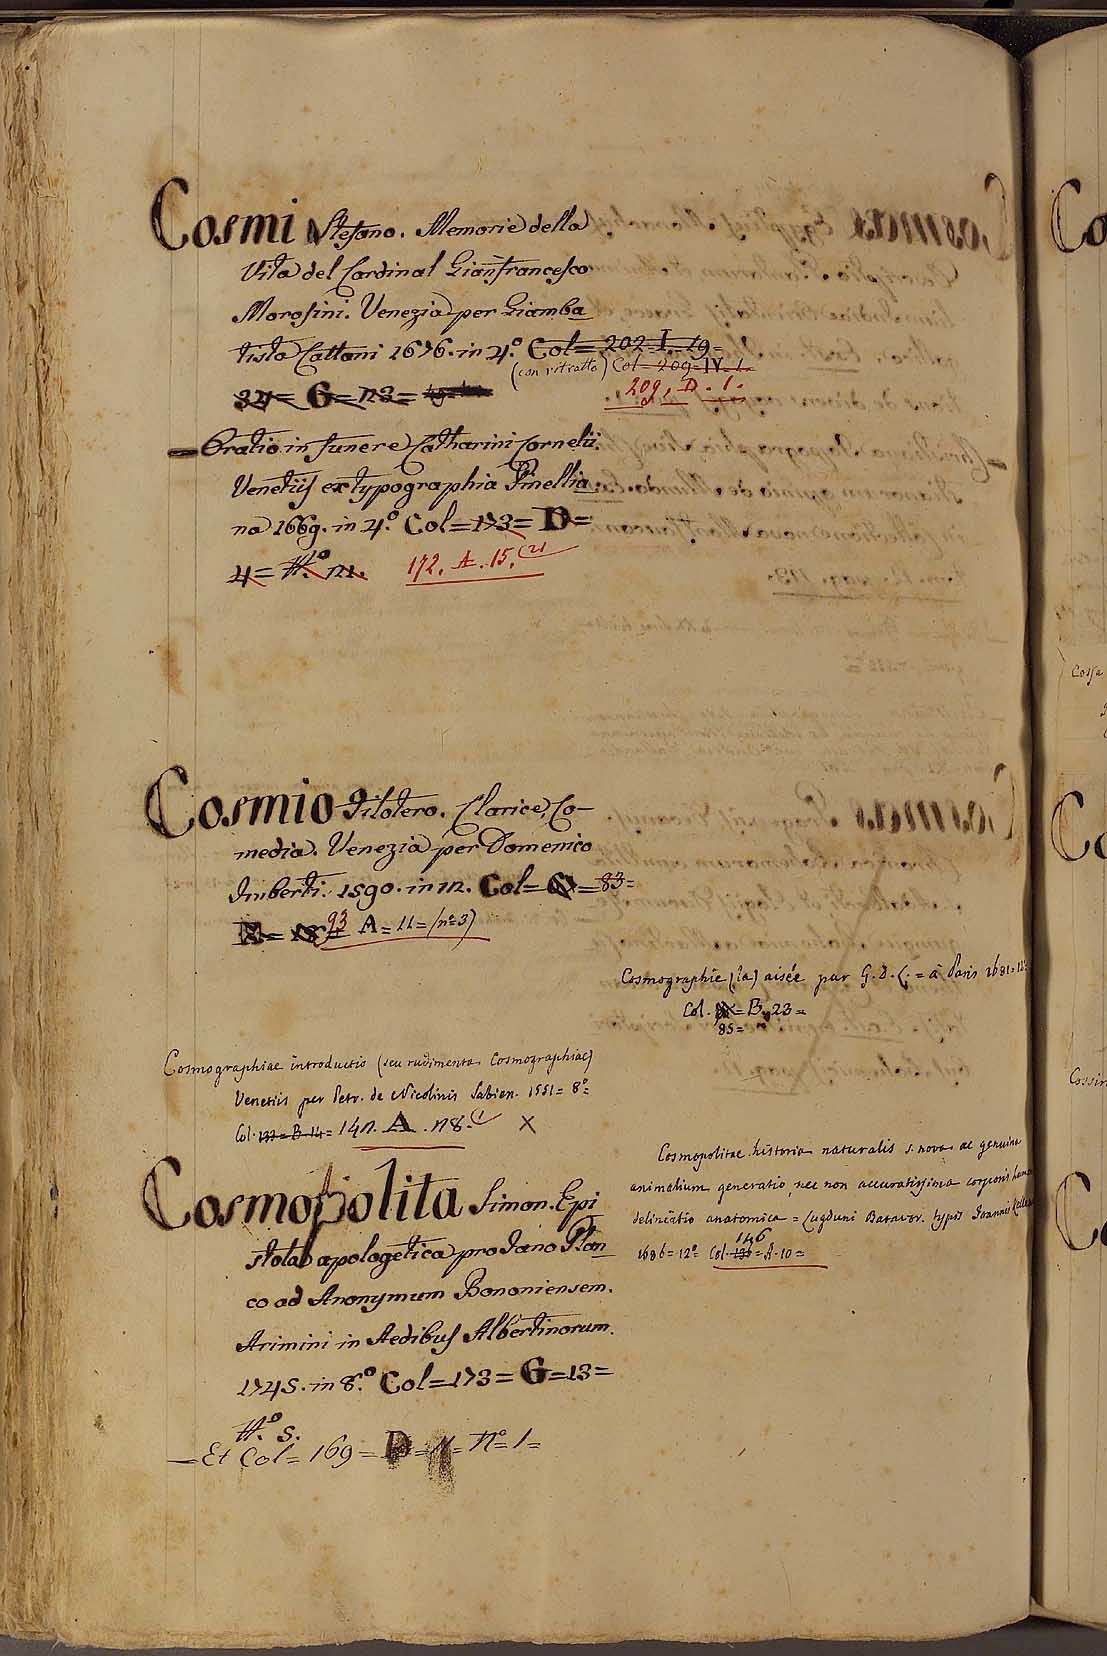 Cosmi Stefano. Memorie della
Vita del Cardinal Gianfrancesco
Morosini. Venezia per Giamba
tista Cattani 1676. in 4.º Col = 202 = I = 19 =
(con ritratto) Col = 209 = IV = 1.
34 = G = n3 =
209. D. 1.
— Oratio in funere Catharini Cornelii.
Venetiis ex typographia Pinellia
na 1669. in 4.º Col = 173 = D =
4 = N.º 12.
172. A. 15. (21
Cosmio Pilotero. Clarice, Co-
media. Venezia per Domenico
Imberti. 1590. in 12. Col = = 83 =
93 A = 11 = (nº 3)
Cosmographiae introductio (seu rudimenta Cosmographiae)
Venetiis per Petr. de Nicolinis Sabien. 1551 = 8º =
Col. 132 = B. 14 = 142. A. 28. X
Cosmopolita Simon. Epi
stola apologetica pro Iano Plan
co ad Anonymum Bononiensem.
Arimini in Aedibus Albertinorum.
1745. in 8.º Col = 173 = G = 13 =
N.º 5.
— Et Col = 169 = D = 11 = Nº = 1 =
Cosmographie (la) aisée par G. D. C. = à Paris 1681 = 12º
Col. = B. 23 =
85 =
Cosmopolitae historia naturalis s. nova ac genuina
animalium generatio, nec non accuratissima corporis
delineatio anatomica = Lugduni Batavor. typis Joannis
146
1686 = 12º = Col. 136 = A. 10 =
Cossa